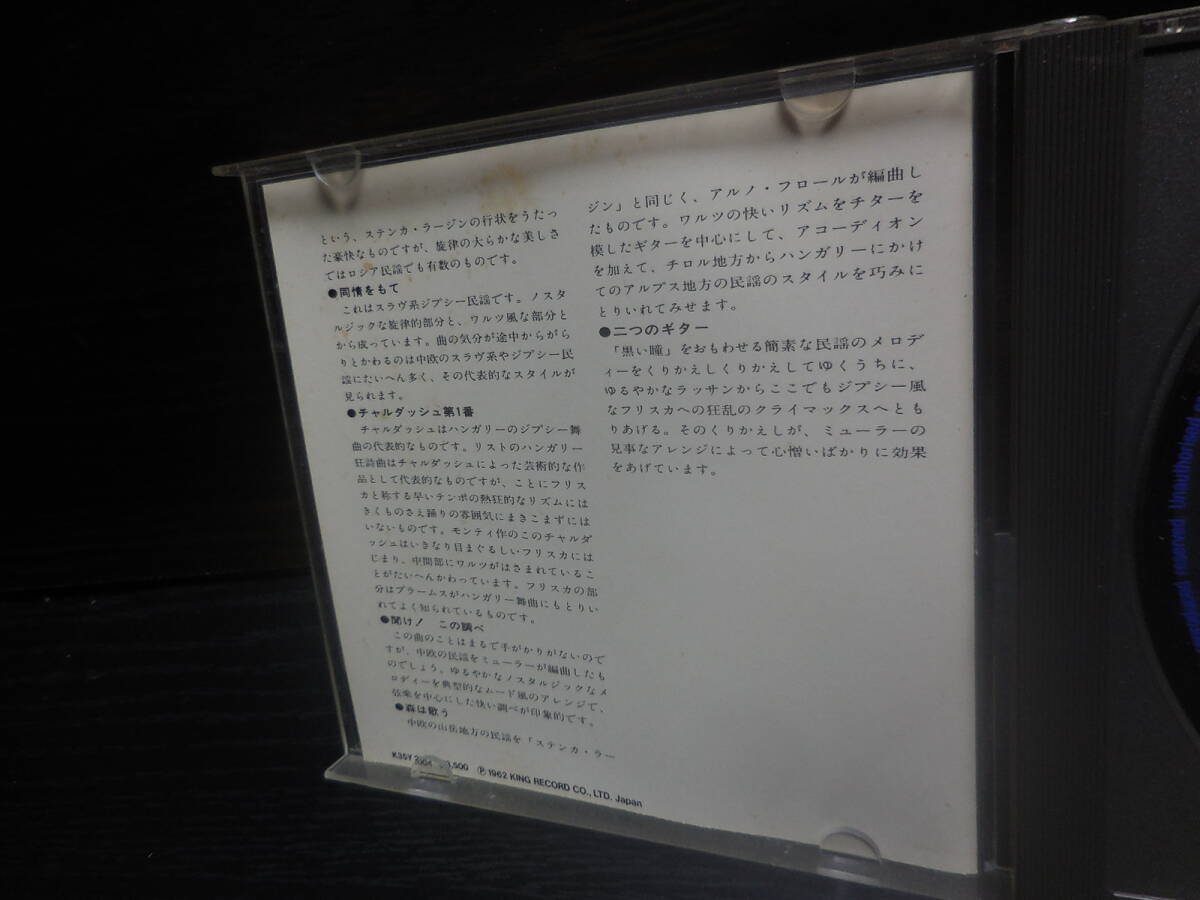 という、ステンカ・ラージンの行状をうたっ
た豪快なものですが、旋律の大らかな美しさ
ではロシア民謡でも有数のものです。
●同情をもて
これはスラヴ系ジプシー民謡です。ノスタ
ルジックな旋律的部分と、ワルツ風な部分と
から成っています。曲の気分が途中からがら
りとかわるのは中欧のスラヴ系やジプシー民
謡にたいへん多く、その代表的なスタイルが
見られます。
●チャルダッシュ第1番
チャルダッシュはハンガリーのジプシー舞
曲の代表的なものです。リストのハンガリー
狂詩曲はチャルダッシュによった芸術的な作
品として代表的なものですが、ことにフリス
カと称する早いテンポの熱狂的なリズムには
きくものさえ踊りの雰囲気にまきこまずには
いないものです。モンティ作のこのチャルダ
ッシュはいきなり目まぐるしいフリスカには
じまり、中間部にワルツがはさまれているこ
とがたいへんかわっています。フリスカの部
分はブラームスがハンガリー舞曲にもとりい
れてよく知られているものです。
●聞け！ この調べ
この曲のことはまるで手がかりがないので
すが、中欧の民謡をミューラーが編曲したも
のでしょう。ゆるやかなノスタルジックなメ
ロディーを典型的なムード風のアレンジで、
弦楽を中心にした快い調べが印象的です。
●森は歌う
中欧の山岳地方の民謡を「ステンカ・ラー
ジン」と同じく、アルノ・フロールが編曲し
たものです。ワルツの快いリズムをチターを
模したギターを中心にして、アコーディオン
を加えて、チロル地方からハンガリーにかけ
てのアルプス地方の民謡のスタイルを巧みに
とりいれてみせます。
●二つのギター
「黒い瞳」をおもわせる簡素な民謡のメロデ
ィーをくりかえしくりかえしてゆくうちに、
ゆるやかなラッサンからここでもジプシー風
なフリスカへの狂乱のクライマックスへとも
りあげる。そのくりかえしが、ミューラーの
見事なアレンジによって心憎いばかりに効果
をあげています。
K35Y 2004 ,500 Ⓟ 1962 KING RECORD CO., LTD. Japan
reserved Unauthorized